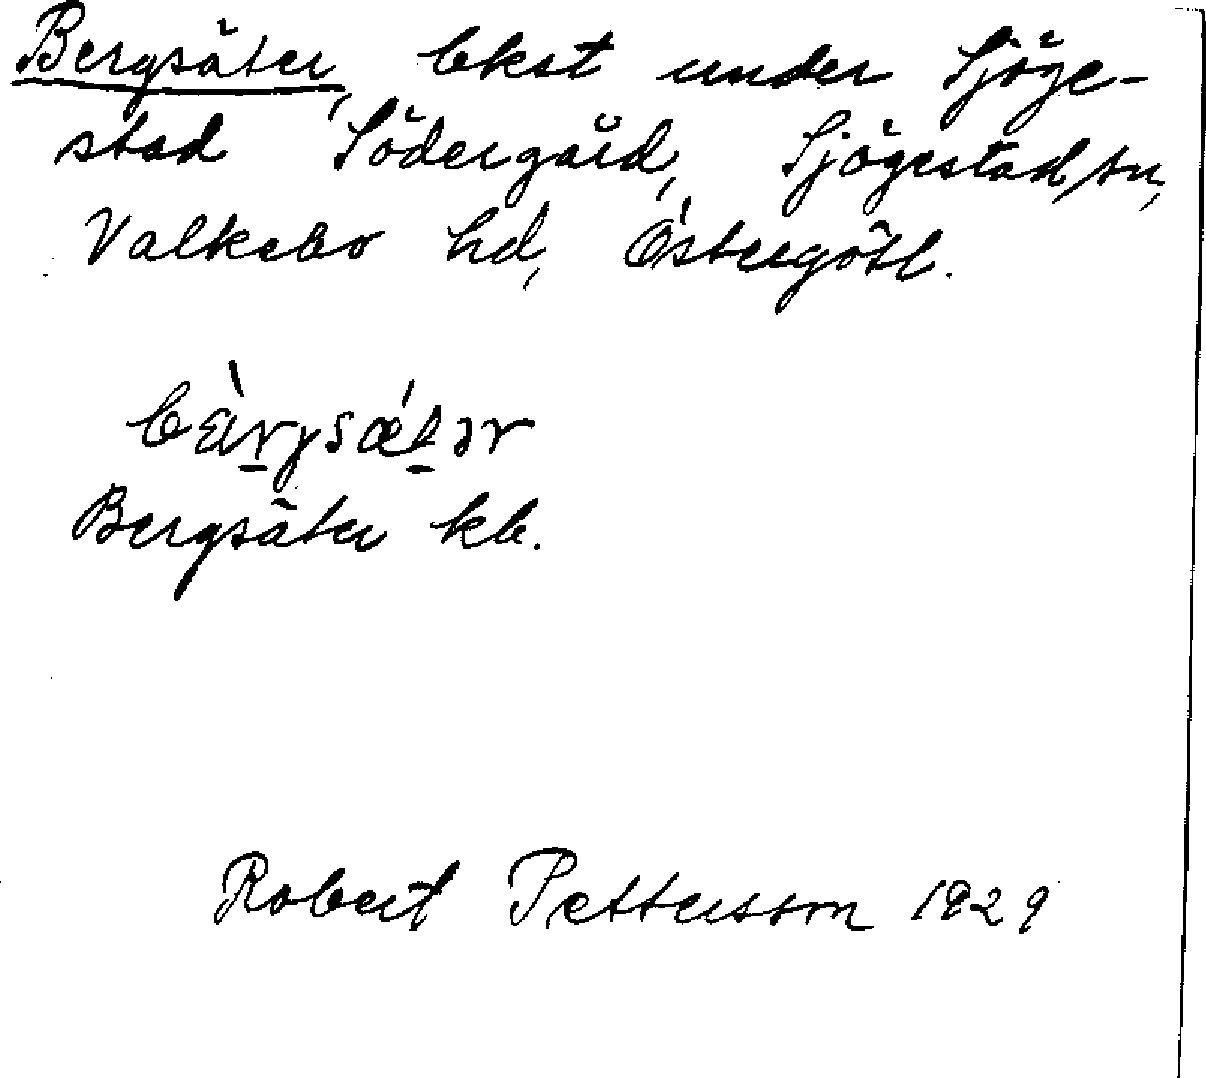 Bergsäter, bkst under Sjöge-
stad Södergård, Sjögestad sn,
Valkebo hd, Östergötl.
bàrgsǽtər
Bergsäter kb.
Robert Pettersson 1929